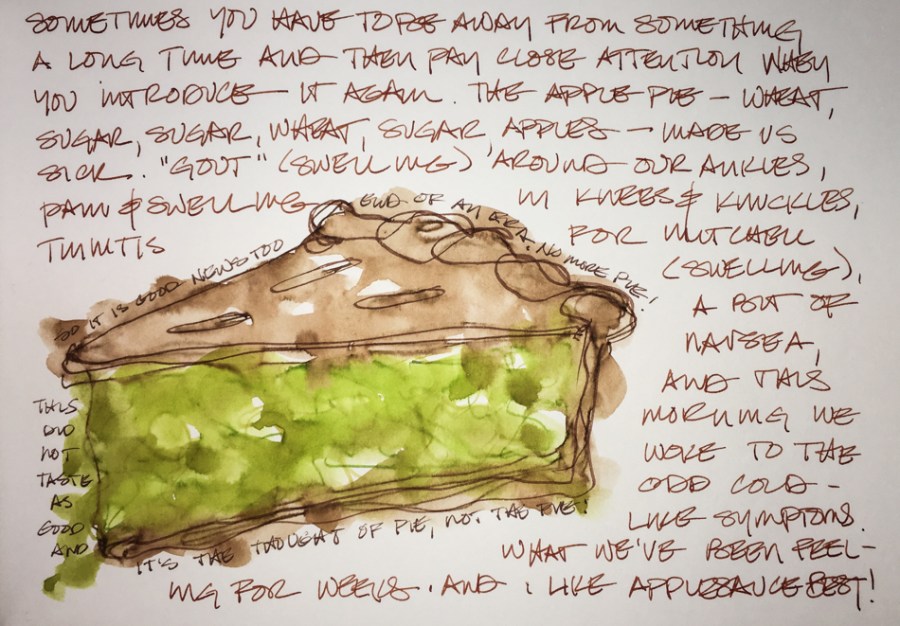 SOMETIMES YOU HAVE TO BE AWAY FROM SOMETHING
A LONG TIME AND THEN PAY CLOSE ATTENTION WHEN
YOU INTRODUCE IT AGAIN. THE APPLE PIE — WHEAT,
SUGAR, SUGAR, WHEAT, SUGAR, APPLES — MADE US
SICK. "GOUT" (SWELLING) AROUND OUR ANKLES,
PAIN & SWELLING IN KNEES & KNUCKLES,
TINNITIS FOR MITCHELL
(SWELLING),
A BOUT OF
NAUSEA,
AND THIS
MORNING WE
WOKE TO THE
ODD COLD-
LIKE SYMPTOMS.
WHAT WE'VE BEEN FEEL-
ING FOR WEEKS. AND I LIKE APPLESAUCE BEST!
END OF AN ERA. NO MORE PIE!
THIS
DID
NOT
TASTE
AS
GOOD
AND
IT'S THE THOUGHT OF PIE, NOT THE PIE!
SO IT IS GOOD NEWS TOO